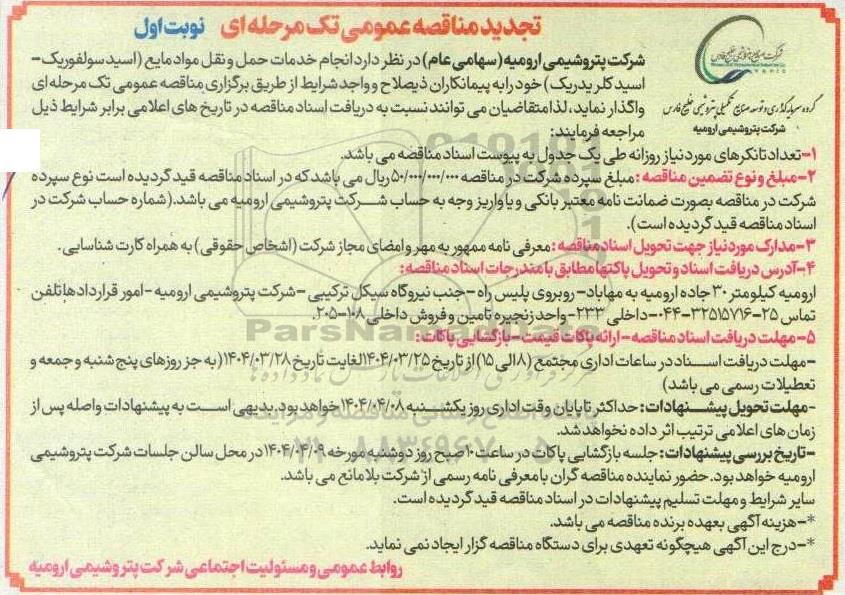 تجدید مناقصه عمومی تک مرحله ای نوبت اول
شرکت پتروشیمی ارومیه (سهامی عام) در نظر دارد انجام خدمات حمل و نقل مواد مایع (اسید سولفوریک-
اسید کلریدریک) خود را به پیمانکاران ذیصلاح و واجد شرایط از طریق برگزاری مناقصه عمومی تک مرحله ای
واگذار نماید، لذا متقاضیان می توانند نسبت به دریافت اسناد مناقصه در تاریخ های اعلامی برابر شرایط ذیل
مراجعه فرمایند:
گروه سرمایه گذاری و توسعه صنایع تکمیلی پتروشیمی خلیج فارس
شرکت پتروشیمی ارومیه
۱-تعداد تانکرهای مورد نیاز روزانه طی یک جدول به پیوست اسناد مناقصه می باشد.
۲-مبلغ و نوع تضمین مناقصه: مبلغ سپرده شرکت در مناقصه ۵۰/۰۰۰/۰۰۰/۰۰۰ ریال می باشد که در اسناد مناقصه قید گردیده است نوع سپرده
شرکت در مناقصه بصورت ضمانت نامه معتبر بانکی و یا واریز وجه به حساب شرکت پتروشیمی ارومیه می باشد.(شماره حساب شرکت در
اسناد مناقصه قید گردیده است).
۳-مدارک مورد نیاز جهت تحویل اسناد مناقصه: معرفی نامه ممهور به مهر و امضای مجاز شرکت (اشخاص حقوقی) به همراه کارت شناسایی.
۴-آدرس دریافت اسناد و تحویل پاکتها مطابق با مندرجات اسناد مناقصه:
ارومیه کیلومتر ۳۰ جاده ارومیه به مهاباد- روبروی پلیس راه -جنب نیروگاه سیکل ترکیبی -شرکت پتروشیمی ارومیه -امور قراردادها تلفن
تماس ۲۵-۳۲۵۱۵۷۱۶-۰۴۴-داخلی ۲۳۳-واحد زنجیره تامین و فروش داخلی ۱۰۸-۲۰۵.
۵-مهلت دریافت اسناد مناقصه-ارائه پاکات قیمت-بازگشایی پاکات:
-مهلت دریافت اسناد در ساعات اداری مجتمع (۸ الی ۱۵) از تاریخ ۱۴۰۴/۰۳/۲۵ لغایت تاریخ ۱۴۰۴/۰۳/۲۸ (به جز روزهای پنج شنبه و جمعه و
تعطیلات رسمی می باشد)
-مهلت تحویل پیشنهادات: حداکثر تا پایان وقت اداری روز یکشنبه ۱۴۰۴/۰۴/۰۸ خواهد بود. بدیهی است به پیشنهادات واصله پس از
زمان های اعلامی ترتیب اثر داده نخواهد شد.
-تاریخ بررسی پیشنهادات: جلسه بازگشایی پاکات در ساعت ۱۰ صبح روز دوشنبه مورخه ۱۴۰۴/۰۴/۰۹ در محل سالن جلسات شرکت پتروشیمی
ارومیه خواهد بود. حضور نماینده مناقصه گران با معرفی نامه رسمی از شرکت بلامانع می باشد.
سایر شرایط و مهلت تسلیم پیشنهادات در اسناد مناقصه قید گردیده است.
*-هزینه آگهی بعهده برنده مناقصه می باشد.
*-درج این آگهی هیچگونه تعهدی برای دستگاه مناقصه گزار ایجاد نمی نماید.
روابط عمومی و مسئولیت اجتماعی شرکت پتروشیمی ارومیه
ParsNamadData